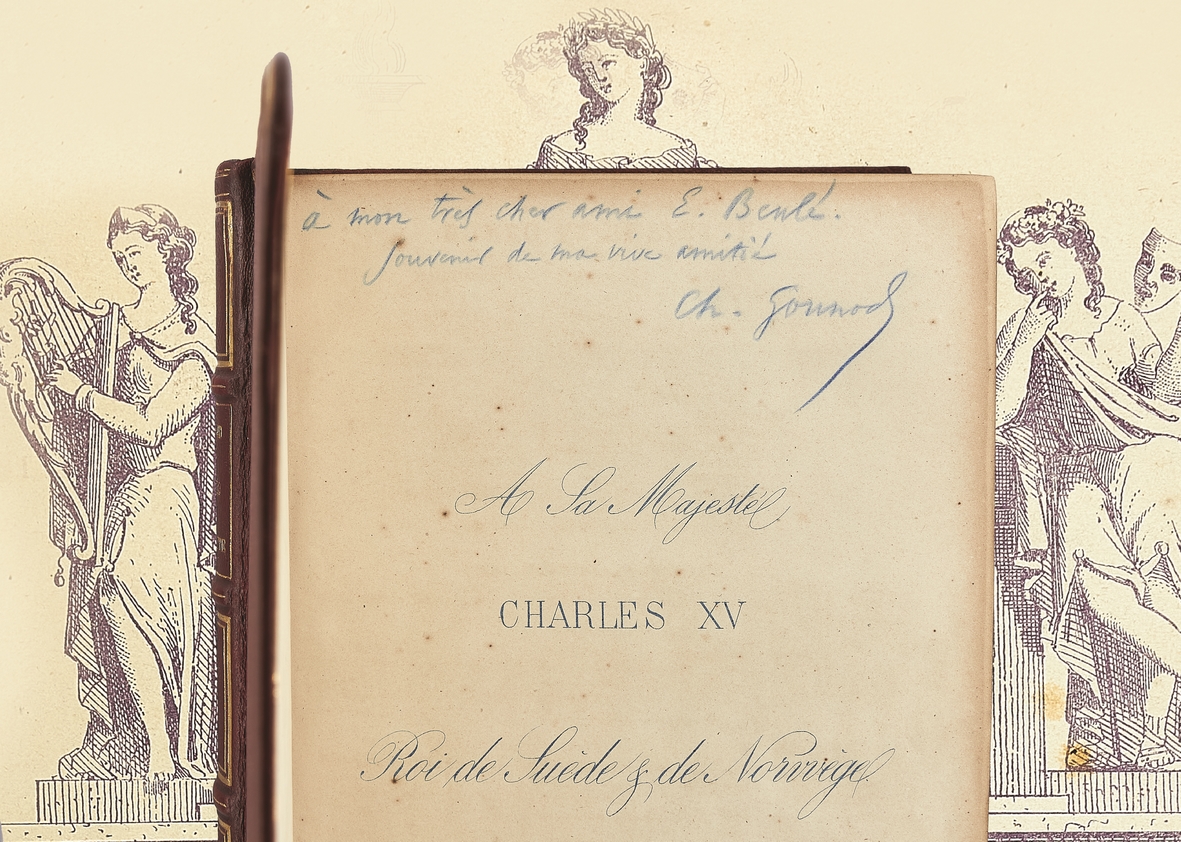 à mon très cher ami E. Beulé.
souvenir de ma vive amitié
Ch. Gounod
A Sa Majesté
CHARLES XV
Roi de Suède & de Norvège